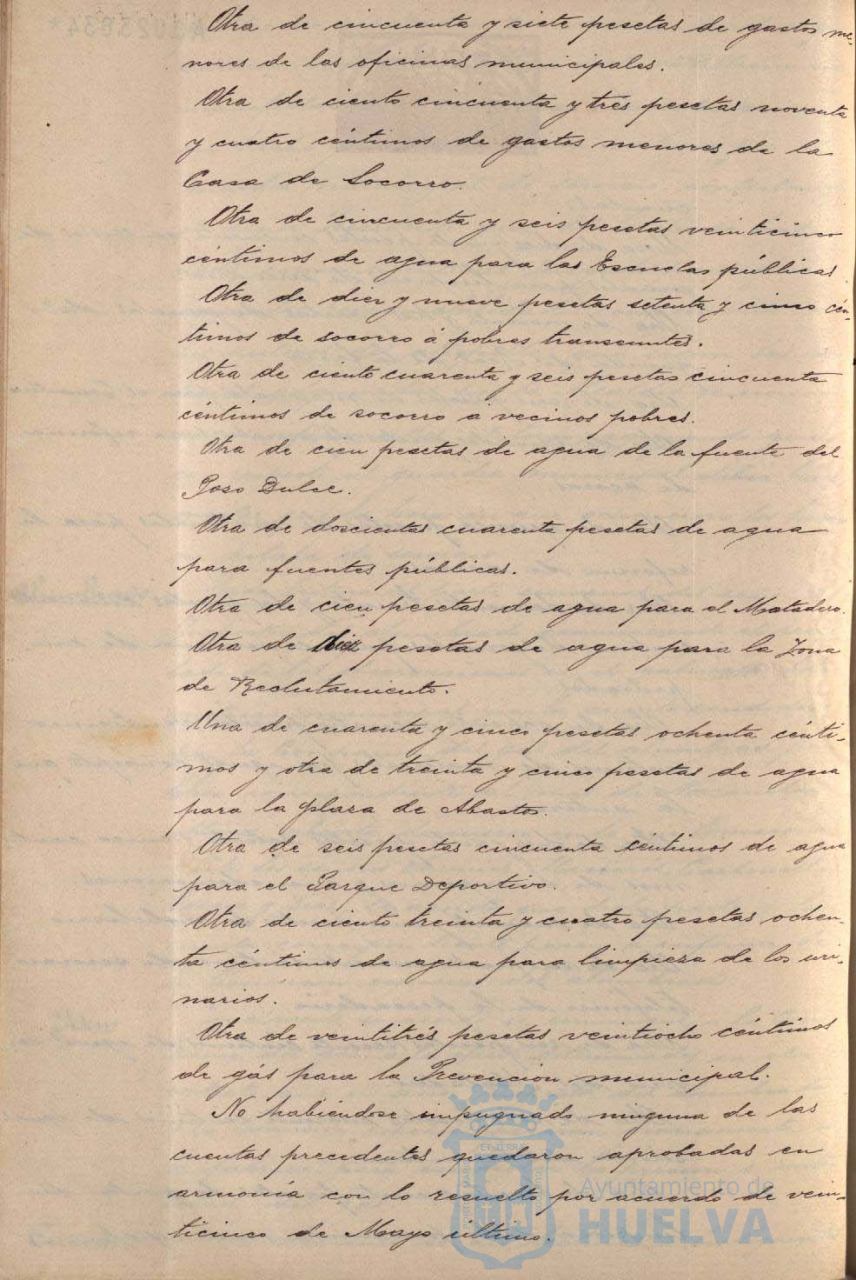 Otra de cincuenta y siete pesetas de gastos me-
nores de las oficinas municipales.
Otra de ciento cincuenta y tres pesetas noventa
y cuatro céntimos de gastos menores de la
Casa de Socorro.
Otra de cincuenta y seis pesetas veinticinco
céntimos de agua para las Escuelas públicas
Otra de diez y nueve pesetas setenta y cinco cén-
timos de socorro á pobres transeuntes.
Otra de ciento cuarenta y seis pesetas cincuenta
céntimos de socorro a vecinos pobres.
Otra de cien pesetas de agua de la fuente del
Poso Dulce.
Otra de doscientas cuarenta pesetas de agua
para fuentes públicas.
Otra de cien pesetas de agua para el Matadero.
Otra de diez pesetas de agua para la Zona
de Reclutamiento.
Una de cuarenta y cinco pesetas ochenta cénti-
mos y otra de treinta y cinco pesetas de agua
para la plaza de Abastos.
Otra de seis pesetas cincuenta céntimos de agua
para el Parque Deportivo.
Otra de ciento treinta y cuatro pesetas ochen-
ta céntimos de agua para limpieza de los uri-
narios.
Otra de veintitrés pesetas veintiocho céntimos
de gás para la Prevención municipal.
No habiéndose impugnado ninguna de las
cuentas precedentes quedaron aprobadas en
armonía con lo resuelto por acuerdo de vein-
ticinco de Mayo último.
Ayuntamiento de
HUELVA